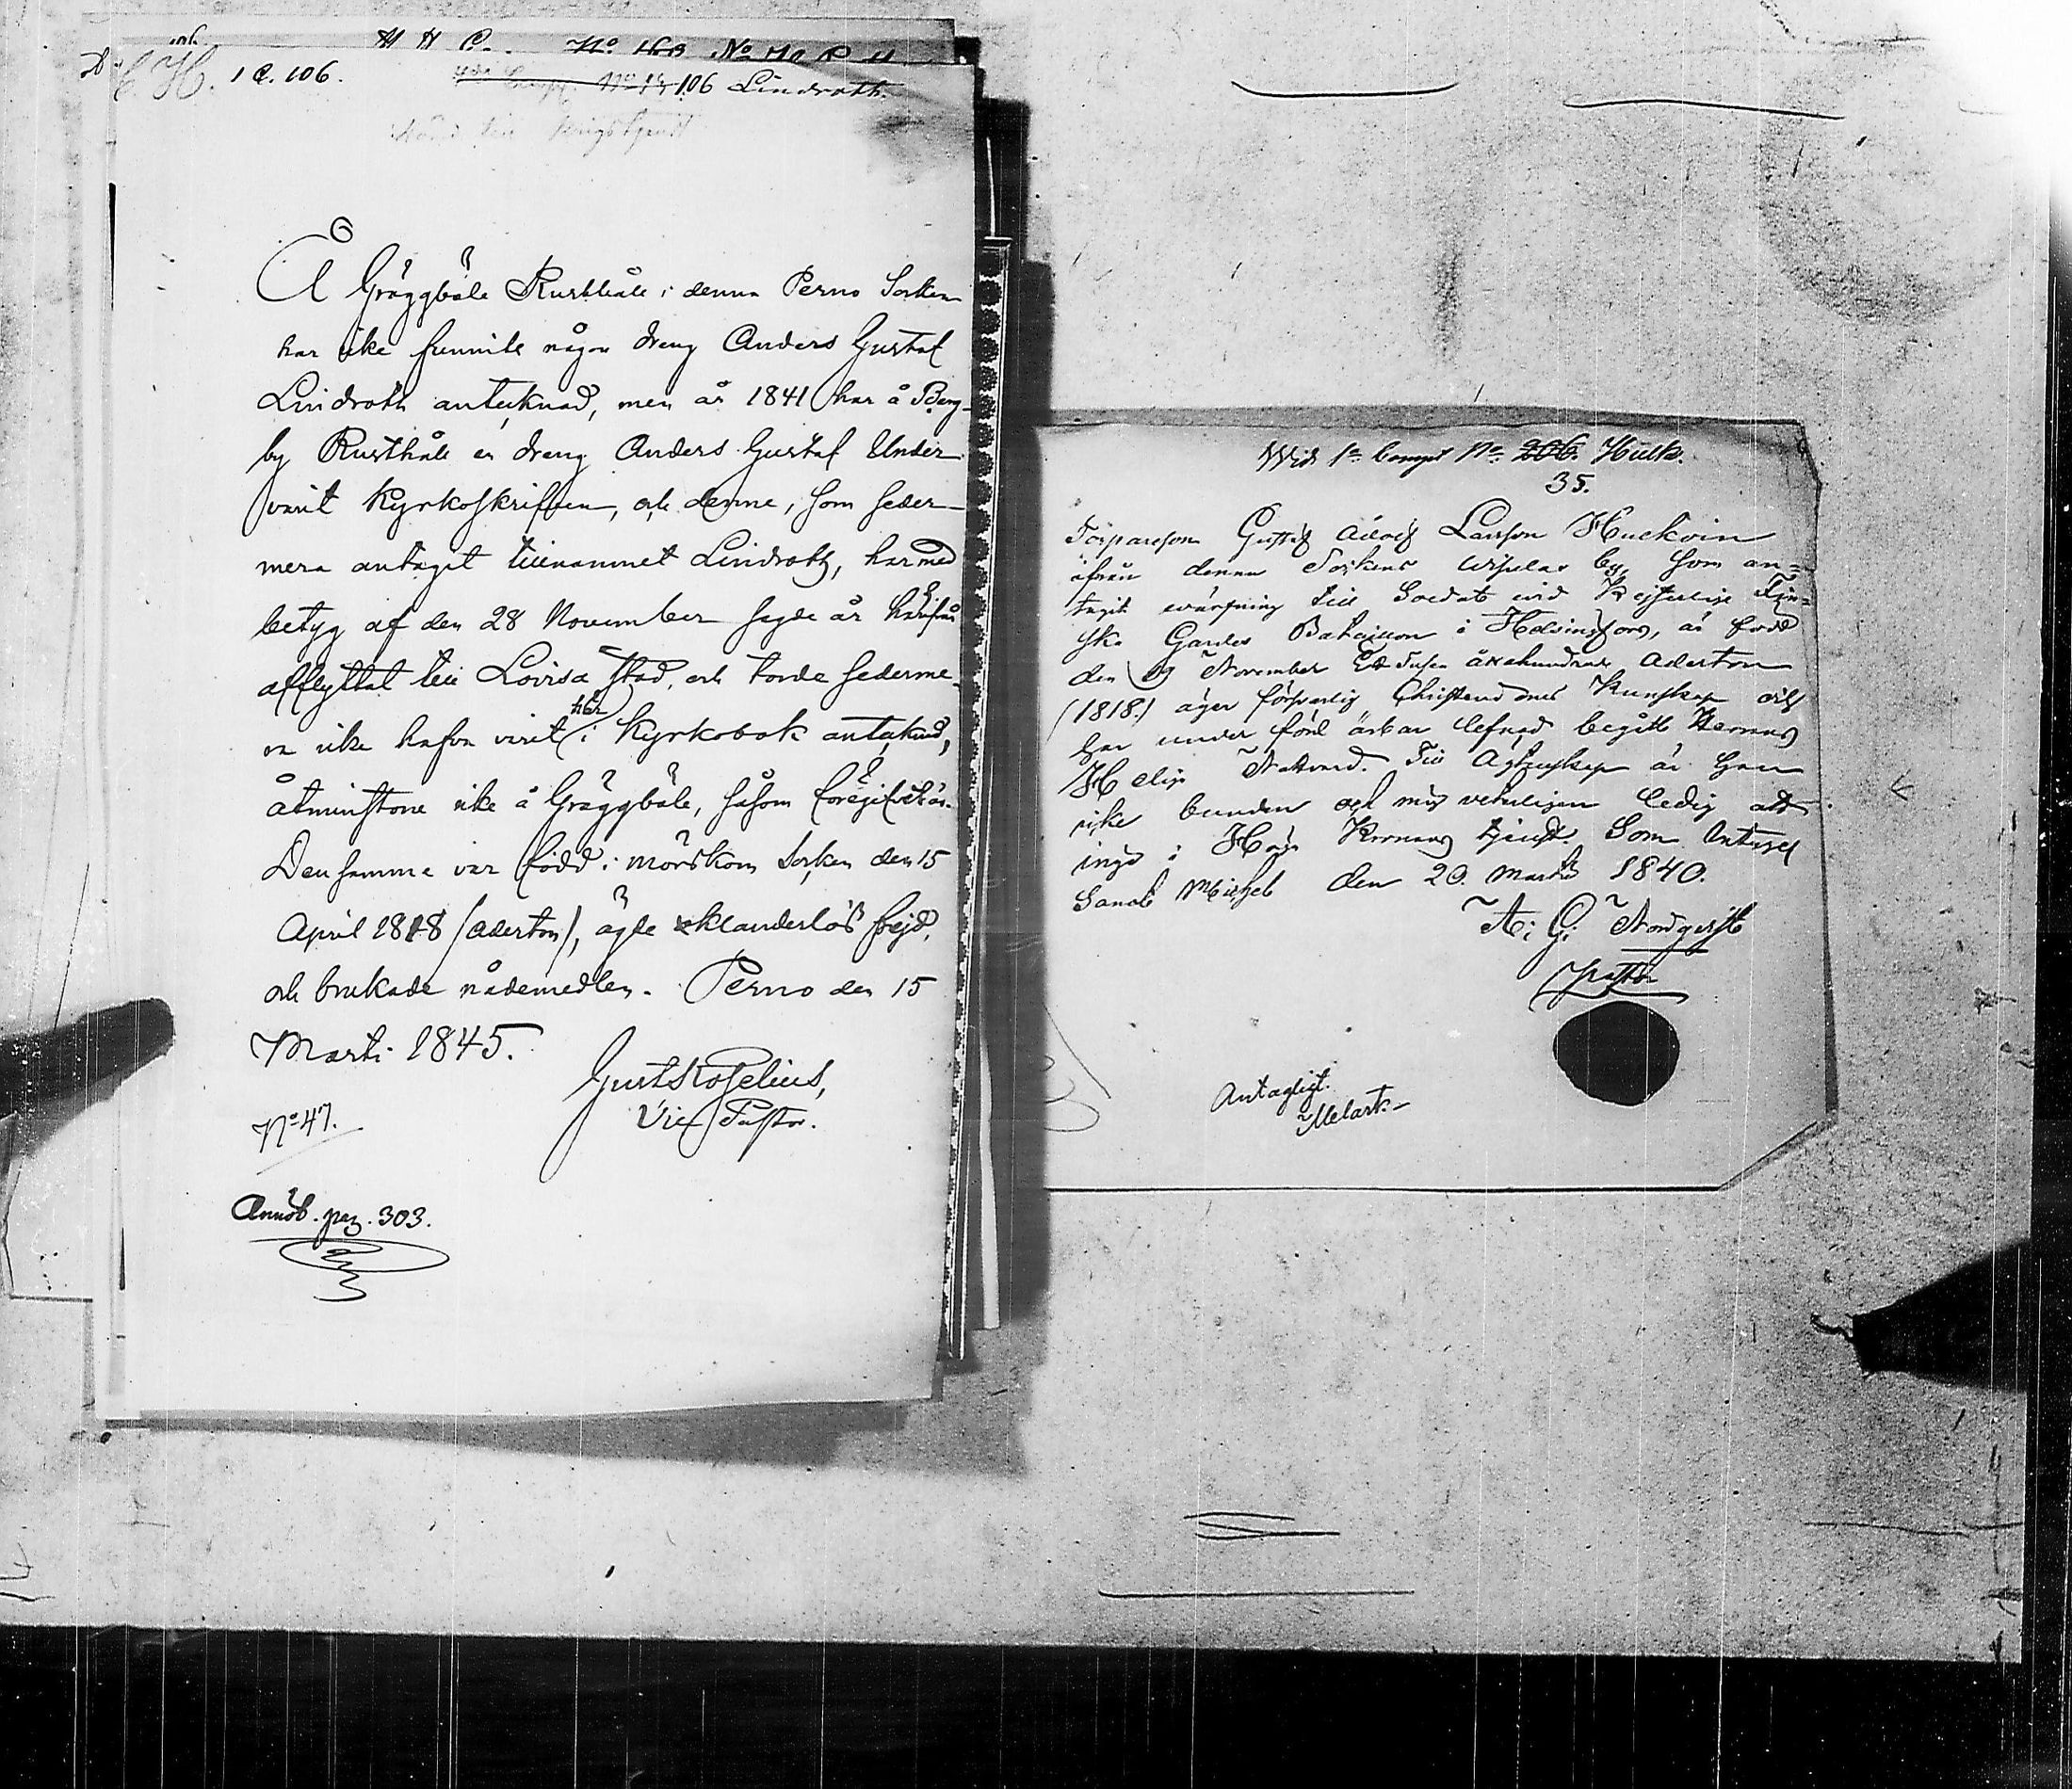 1 C. 106.
106 Lindroth.
Å Gräggböle Rusthåll i denna Perno Socken
har icke funnits någon dreng Anders Gustaf
Lindroth antecknad, men år 1841 har å Berg-
by Rusthåll en dreng Anders Gustaf Under
varit Kyrkoskrifven, och denne, som seder-
mera antagit tillnamnet Lindroth, har med
betyg af den 28 November sagde år härifrån
afflyttat till Lovisa stad, och torde sederme-
ra icke hafva varit här i Kyrkobok antecknad,
åtminstone icke å Gräggböle, såsom föregifvet är.
Densamme var född i Mörskom Socken den 15
April 1818 (aderton), ägde oklanderlig frejd,
och brukade nådemedlen. Perno den 15
Martii 1845.
Gust Roselius,
Vice Pastor.
No 47.
Annot. pag. 303.
Wid 1a Comp No 206. Hulk.
35.
Torparesson Gustaf Adolf Larsson Huckoin
ifrån denna Sockens by, som an-
tagit wärfning till Soldat wid Kejserliga Fin-
ska Gardes Bataillon i Helsingfors, är född
den 19 November Ett Tusen åttahundrade Aderton
(1818.) äger försvarlig Christendoms Kunskap och
har under förd ärbar lefnad begått Herrans
Helga Nattvard. Till Ägtenskap är han
icke bunden och mig veterligen ledig att
ingå i Höga Kronans tjenst. Som Attest
Sanct Michel den 20 Martii 1840.
A: G: Nordqvist
Pastor
Antagligt.
Melart.